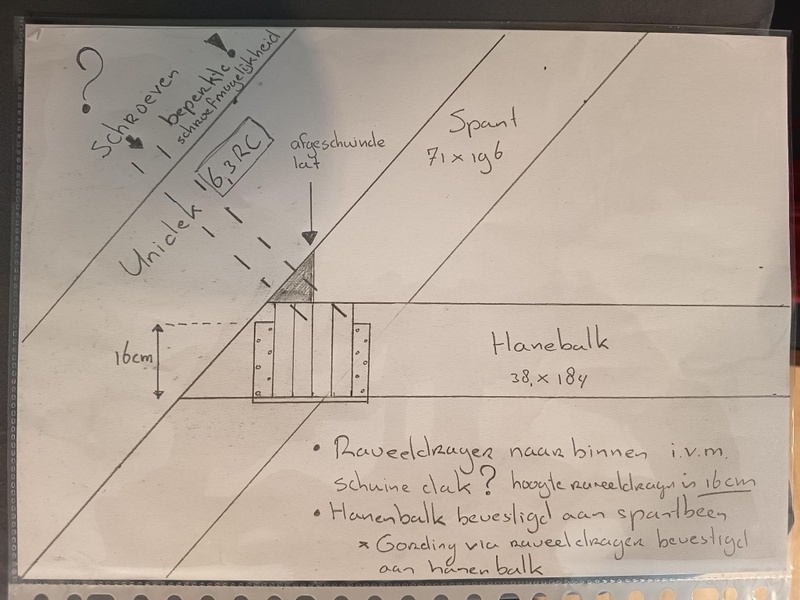 ?
Schroeven
beperkte!
schroefmogelijkheid
Unidek 6,3RC
afgeschuinde
lat
Spant
71 x 196
16cm
Hanebalk
38, x 184
• Raveeldrager naar binnen i.v.m.
schuine dak? hoogte raveeldrager is 16cm
• Hanenbalk bevestigd aan spantbeen
* Gording via raveeldrager bevestigd
aan hanenbalk